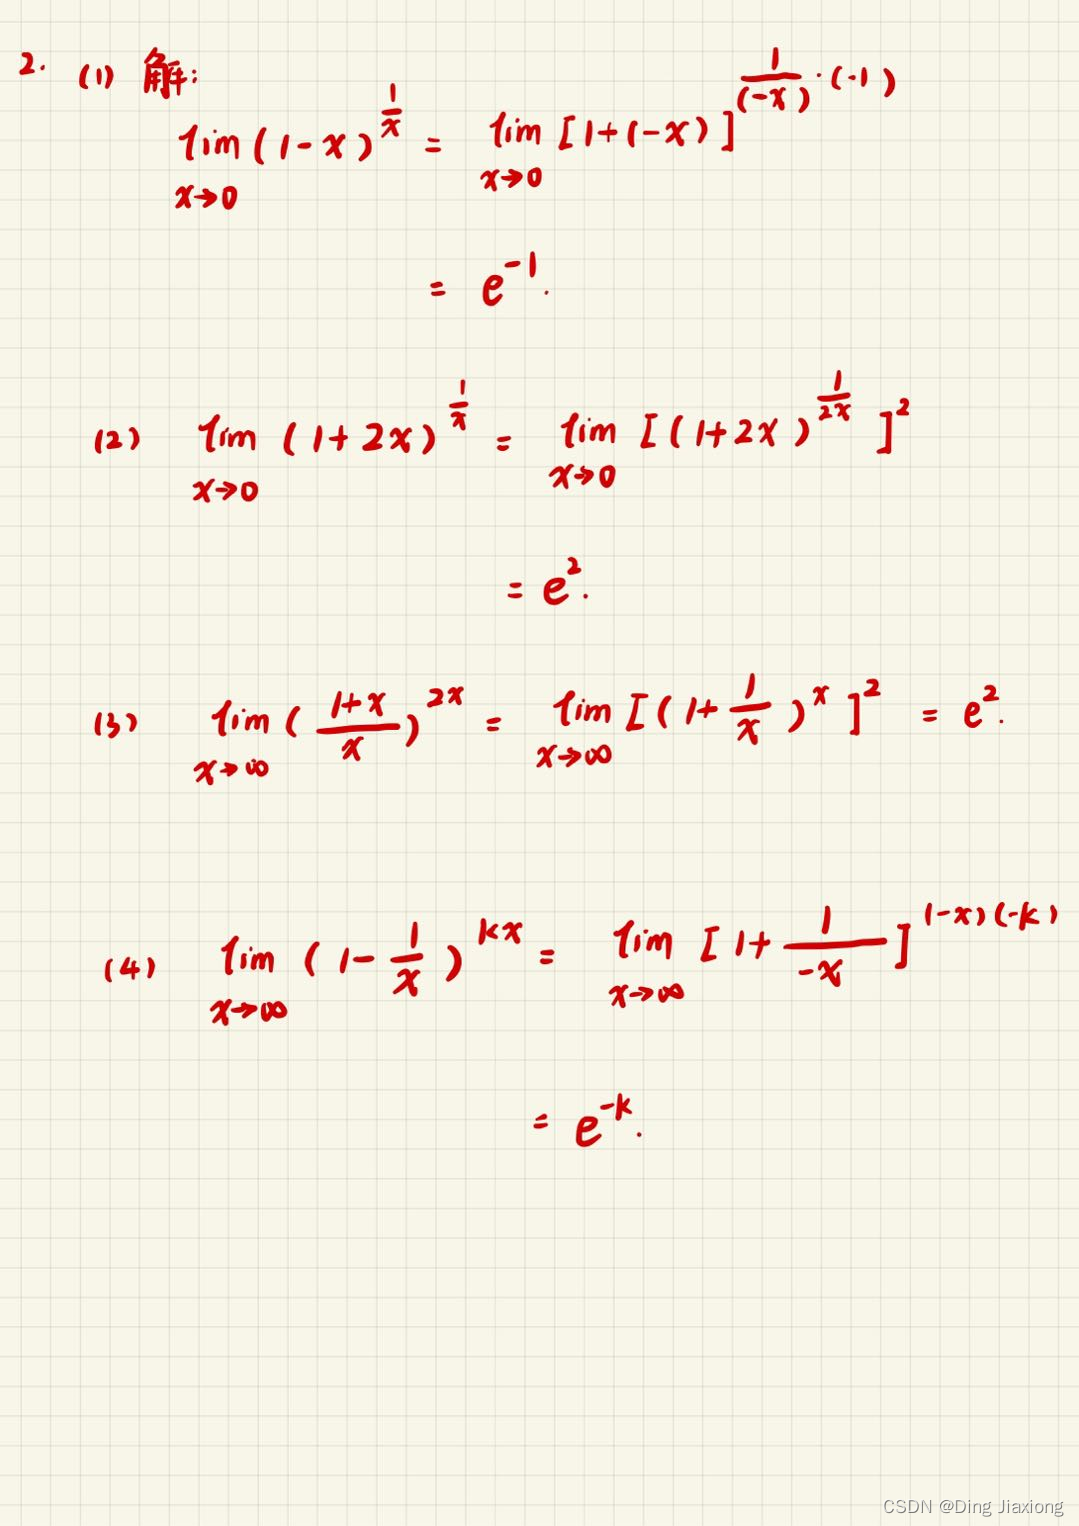 2. (1) 解:
lim_{x→0} (1-x)^{\frac{1}{x}} = lim_{x→0} [1+(-x)]^{\frac{1}{(-x)}·(-1)}
= e^{-1}.
(2) lim_{x→0} (1+2x)^{\frac{1}{x}} = lim_{x→0} [(1+2x)^{\frac{1}{2x}}]^2
= e^2.
(3) lim_{x→∞} (\frac{1+x}{x})^{2x} = lim_{x→∞} [(1+\frac{1}{x})^x]^2 = e^2.
(4) lim_{x→∞} (1-\frac{1}{x})^{kx} = lim_{x→∞} [1+\frac{1}{-x}]^{(-x)(-k)}
= e^{-k}.
CSDN @Ding Jiaxiong